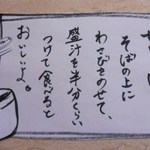 そばの上に
わさびをのせて、
盛汁を半分くらい
つけて食べると
おいしいよ。